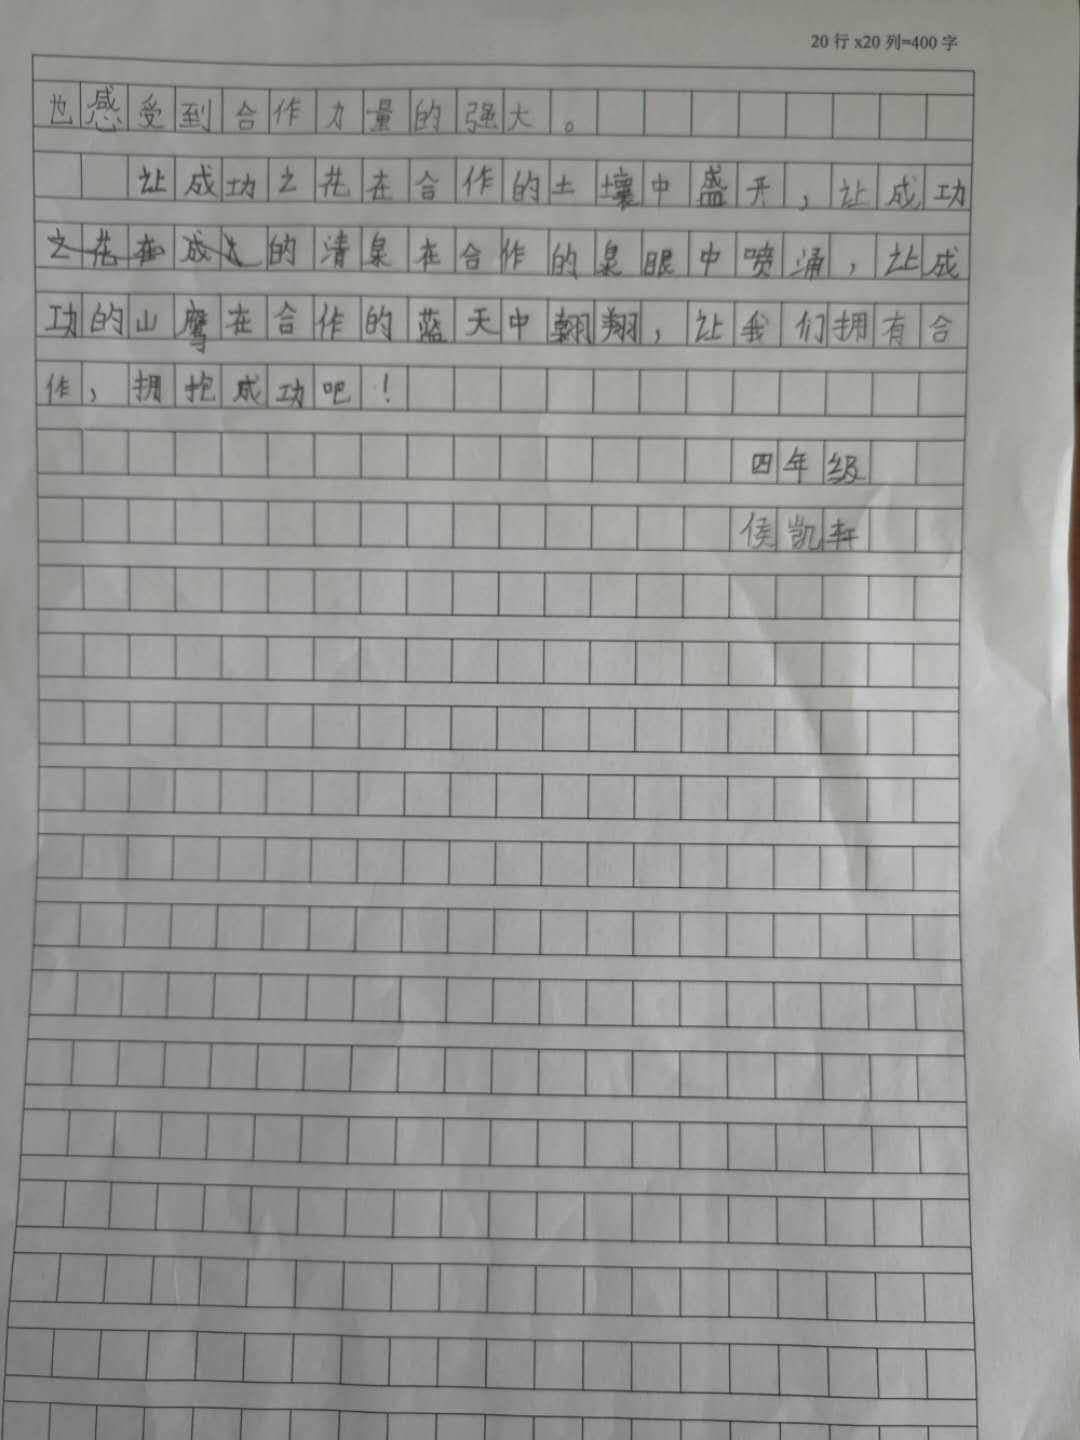 20 行 x20 列=400 字
也感受到合作力量的强大。
让成功之花在合作的土壤中盛开，让成功
的清泉在合作的泉眼中喷涌，让成
功的山鹰在合作的蓝天中翱翔，让我们拥有合
作，拥抱成功吧！
四年级
侯凯轩